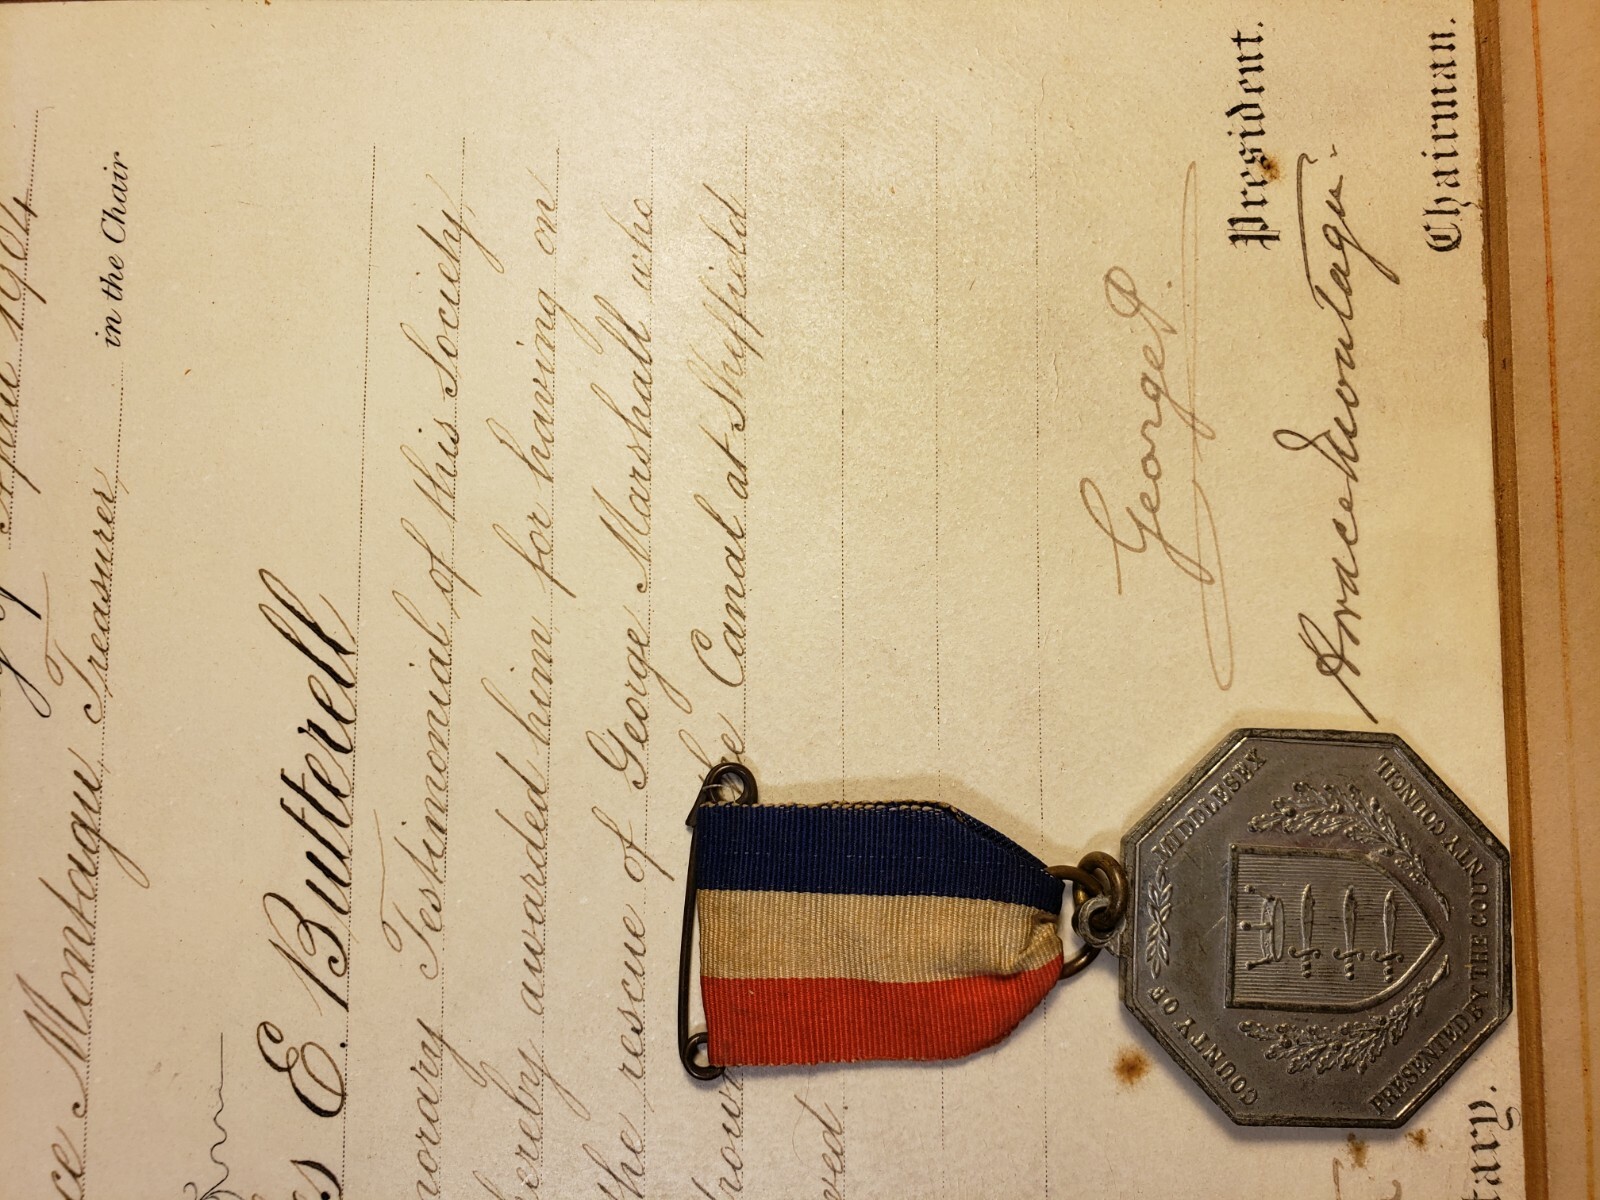 April 1904
ce Montagu Treasurer in the Chair
s E. Butterell
norary Testimonial of this Society
hereby awarded him for having on
the rescue of George Marshall who
the Canal at Sheffield
ved.
George P.
President.
Horace Montagu.
Chairman.
tary.
COUNTY OF MIDDLESEX
PRESENTED BY THE COUNTY COUNTY COUNCIL